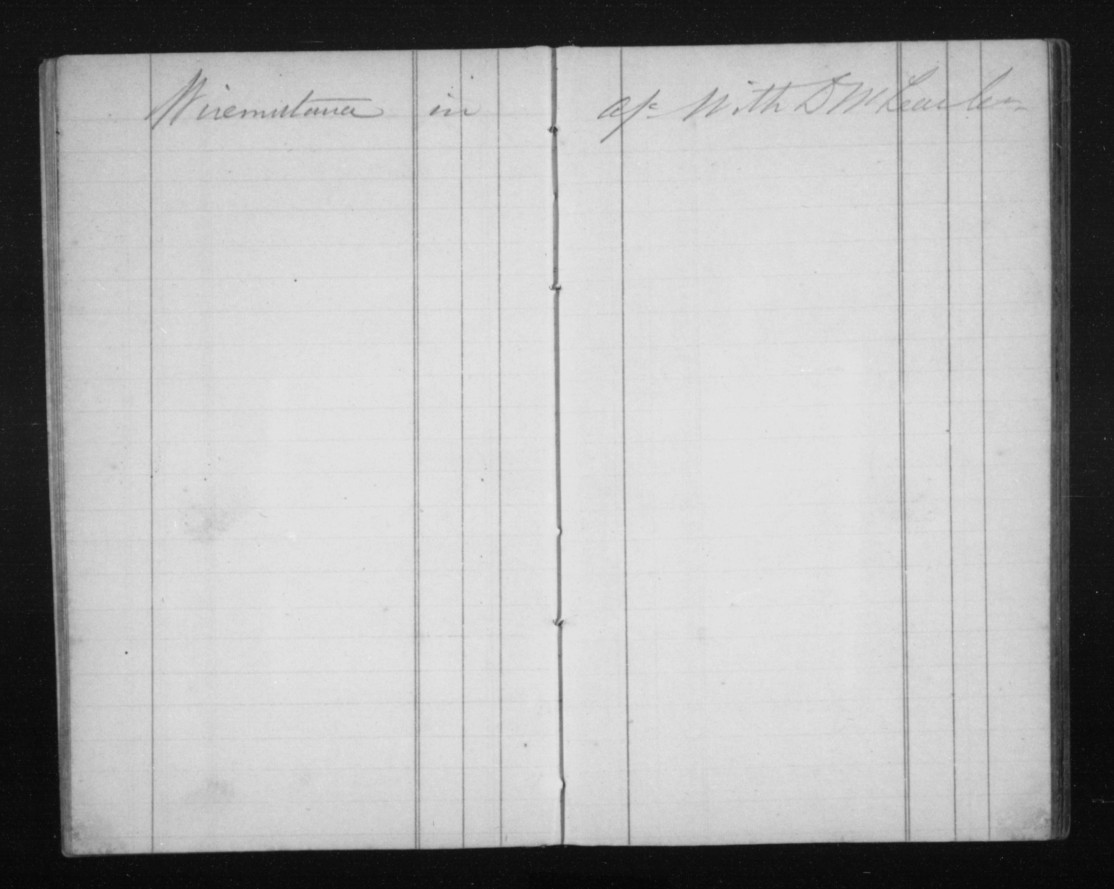 Wiremutaua in a/c With D McLean